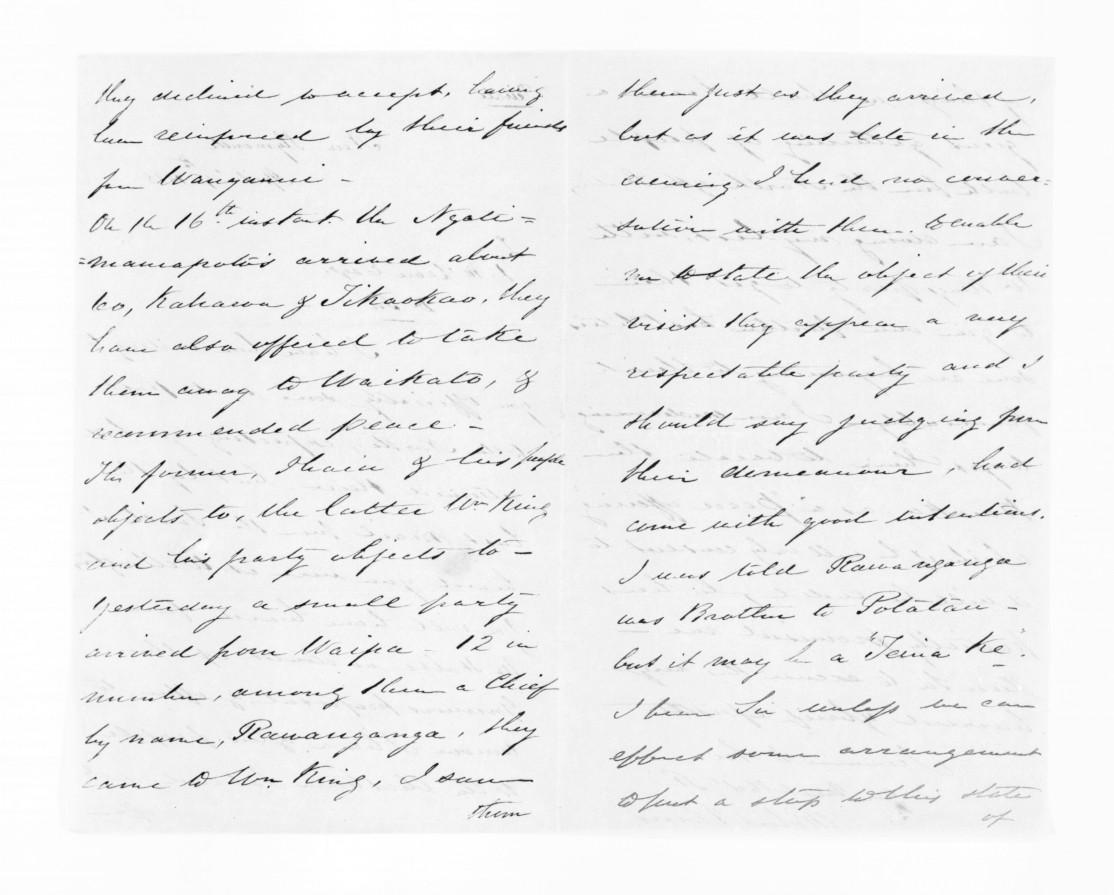 they declined to accept, having
been reinforced by their friends
from Wanganui -
On the 16th instant the Ngati=
=maniapoto's arrived about
60, Kahawa & Tikaokao, they
have also offered to take
them away to Waikato, &
recommended peace -
The former, Ihaia & his people
objects to, the latter Wm King
and his party objects to -
Yesterday a small party
arrived from Waipa - 12 in
number, among them a Chief
by name, Rawanganga, they
came to Wm King, I saw
them
them just as they arrived,
but as it was late in the
evening I had no conver=
sation with them. to enable
me to state the object of their
visit. they appear a very
respectable party and I
should say judging from
their demeanour, had
come with good intentions.
I was told Rawanganga
was Brother to Potatau -
but it may be a "Teina Ke".
I hear Sir unless we can
effect some arrangement
to put a stop to this state
of